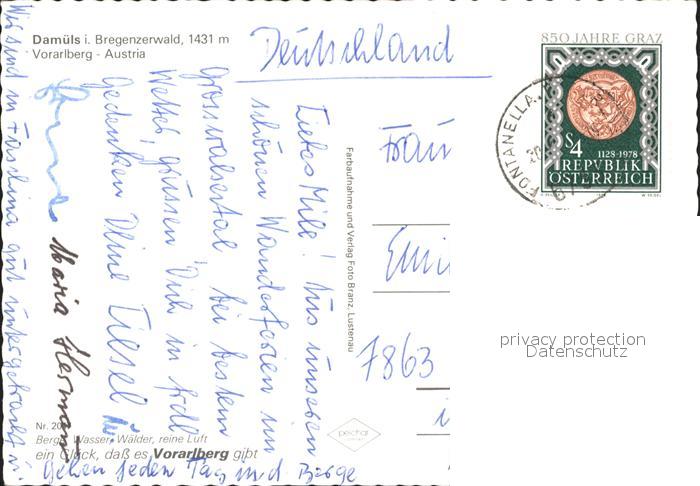 Damüls i. Bregenzerwald, 1431 m
Vorarlberg - Austria
Deutschland
850 JAHRE GRAZ
S4
1128-1978
REPVBLIK
ÖSTERREICH
FONTANELLA
Liebes Mile! Aus unseren
schönen Wanderferien im
Grosswalsertal bei bestem
Wetter, grüssen Dich in
Gedenken Deine Liesel
Maria Hermann
Wir sind in Faschina gut untergebracht u.
gehen jeden Tag in d. Berge
Frau
7863
Farbaufnahme und Verlag Foto Branz, Lustenau
Nr. 20
Berge, Wasser, Wälder, reine Luft
ein Glück, daß es Vorarlberg gibt
privacy protection
Datenschutz